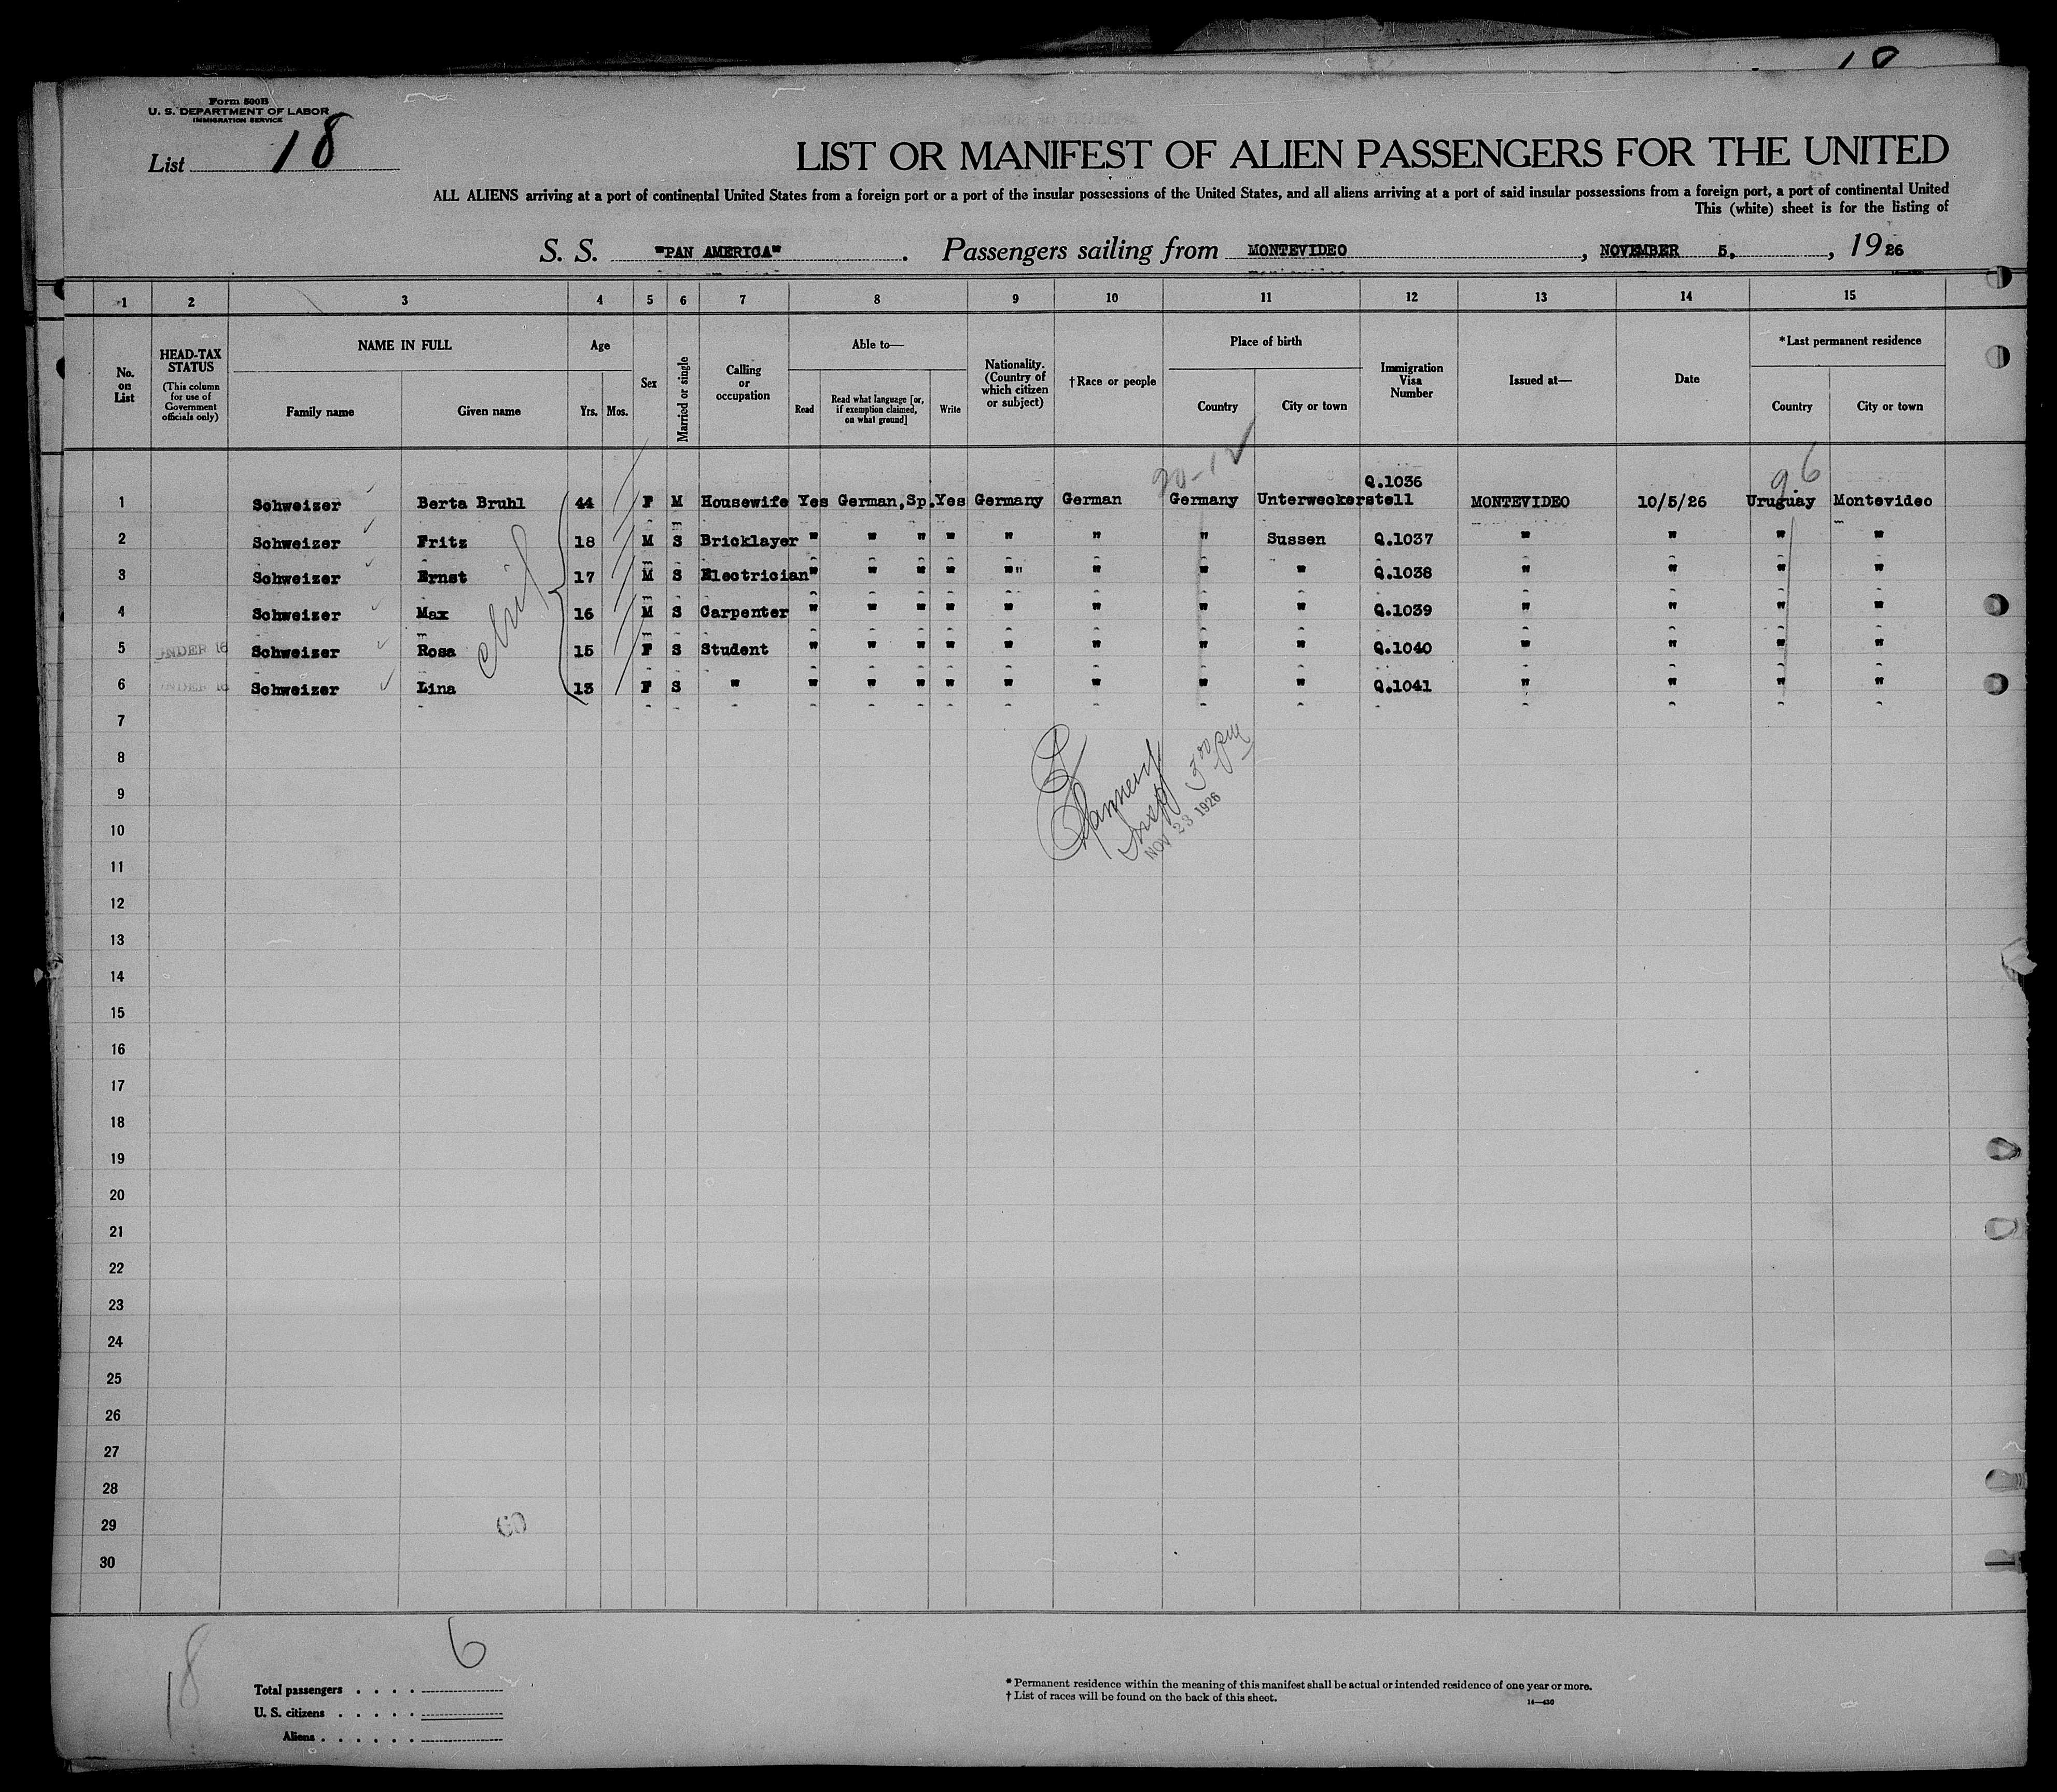 18
Form 500B
U. S. DEPARTMENT OF LABOR
IMMIGRATION SERVICE
List 18
LIST OR MANIFEST OF ALIEN PASSENGERS FOR THE UNITED
ALL ALIENS arriving at a port of continental United States from a foreign port or a port of the insular possessions of the United States, and all aliens arriving at a port of said insular possessions from a foreign port, a port of continental United
This (white) sheet is for the listing of
S. S. "PAN AMERICA". Passengers sailing from MONTEVIDEO, NOVEMBER 5, , 1926
1 2 3 4 5 6 7 8 9 10 11 12 13 14 15
No. on List
HEAD-TAX STATUS (This column for use of Government officials only)
NAME IN FULL
Family name Given name
Age
Yrs. Mos.
Sex
Married or single
Calling or occupation
Able to—
Read Read what language [or, if exemption claimed, on what ground] Write
Nationality. (Country of which citizen or subject)
†Race or people
Place of birth
Country City or town
Immigration Visa Number
Issued at—
Date
*Last permanent residence
Country City or town
96
1 Schweizer Berta Bruhl 44 F M Housewife Yes German,Sp. Yes Germany German Germany Unterweckerstell Q.1036 MONTEVIDEO 10/5/26 Uruguay Montevideo
2 Schweizer Fritz 18 M S Bricklayer " " " " " " " Sussen Q.1037 " " " "
3 Schweizer Ernst 17 M S Electrician " " " " "" " " " Q.1038 " " " "
4 Schweizer Max 16 M S Carpenter " " " " " " " " Q.1039 " " " "
5 UNDER 16 Schweizer Rosa 15 F S Student " " " " " " " " Q.1040 " " " "
6 UNDER 16 Schweizer Lina 13 F S " " " " " " " " " Q.1041 " " " "
7
8
9
10
11
12
13
14
15
16
17
18
19
20
21
22
23
24
25
26
27
28
29
30
Insp
3 00 pm
NOV 23 1926
18
6
Total passengers
U. S. citizens
Aliens
* Permanent residence within the meaning of this manifest shall be actual or intended residence of one year or more.
† List of races will be found on the back of this sheet.
14—430